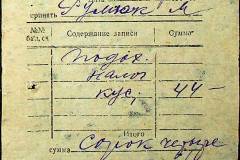 принять Румзак М
№№ бал. сч. Содержание записи Сумма
Подох.
налог
кус. 44-
Итого
сумма Сорок четыре